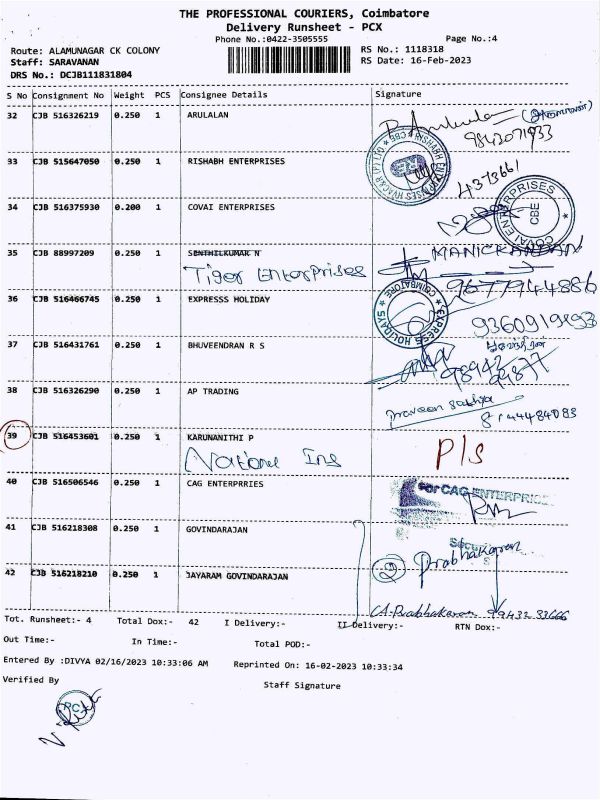 THE PROFESSIONAL COURIERS, Coimbatore
Delivery Runsheet - PCX
Phone No.:0422-3505555
Page No.:4
Route: ALAMUNAGAR CK COLONY
RS No.: 1118318
Staff: SARAVANAN
RS Date: 16-Feb-2023
DRS No.: DCJB111831804
S No Consignment No Weight PCS Consignee Details Signature
32 CJB 516326219 0.250 1 ARULALAN
9842071933
33 CJB 515647050 0.250 1 RISHABH ENTERPRISES
4373661
34 CJB 516375930 0.200 1 COVAI ENTERPRISES
COVAI ENTERPRISES CBE
35 CJB 88997209 0.250 1 SENTHILKUMAR N MANICKANDAN
Tiger Enterprises
9677944886
36 CJB 516466745 0.250 1 EXPRESSS HOLIDAY
EXPRESS HOLIDAYS COIMBATORE
37 CJB 516431761 0.250 1 BHUVEENDRAN R S
38 CJB 516326290 0.250 1 AP TRADING
Praveen
39 CJB 516453601 0.250 1 KARUNANITHI P P/S
40 CJB 516506546 0.250 1 CAG ENTERPRRIES
for CAG ENTERPRISE
41 CJB 516218308 0.250 1 GOVINDARAJAN
2 Prabhakaran
42 CJB 516218210 0.250 1 JAYARAM GOVINDARAJAN
CA-Prabhakaran
Tot. Runsheet:- 4 Total Dox:- 42 I Delivery:- II Delivery:- RTN Dox:-
Out Time:- In Time:- Total POD:-
Entered By :DIVYA 02/16/2023 10:33:06 AM Reprinted On: 16-02-2023 10:33:34
Verified By
Staff Signature